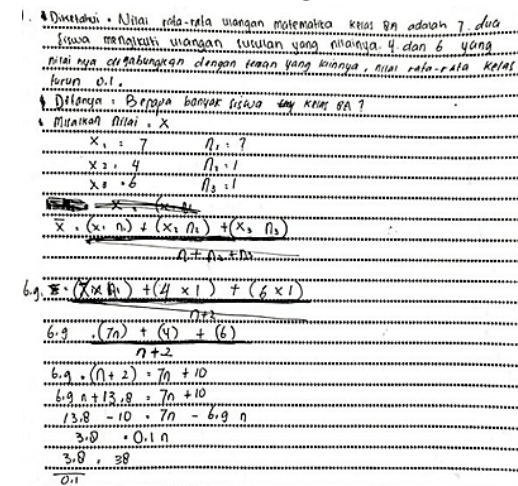 1. Diketahui : Nilai rata-rata ulangan matematika kelas 8A adalah 7. dua
siswa mengikuti ulangan susulan yang nilainya 4 dan 6 yang
nilai nya digabungkan dengan teman yang lainnya, nilai rata-rata kelas
turun 0.1.
Ditanya : Berapa banyak siswa kelas 8A ?
Misalkan nilai : X
X₁ : 7 n₁ : ?
X₂ : 4 n₂ : 1
X₃ : 6 n₃ : 1
X̄ = (x₁ n₁) + (x₂ n₂) + (x₃ n₃)
n₁ + n₂ + n₃
6.9 = (7 x n₁) + (4 x 1) + (6 x 1)
n+2
6.9 = (7n) + (4) + (6)
n+2
6.9 . (n + 2) = 7n + 10
6.9 n + 13.8 = 7n + 10
13.8 - 10 = 7n - 6.9 n
3.8 = 0.1 n
3.8 = 38
0.1